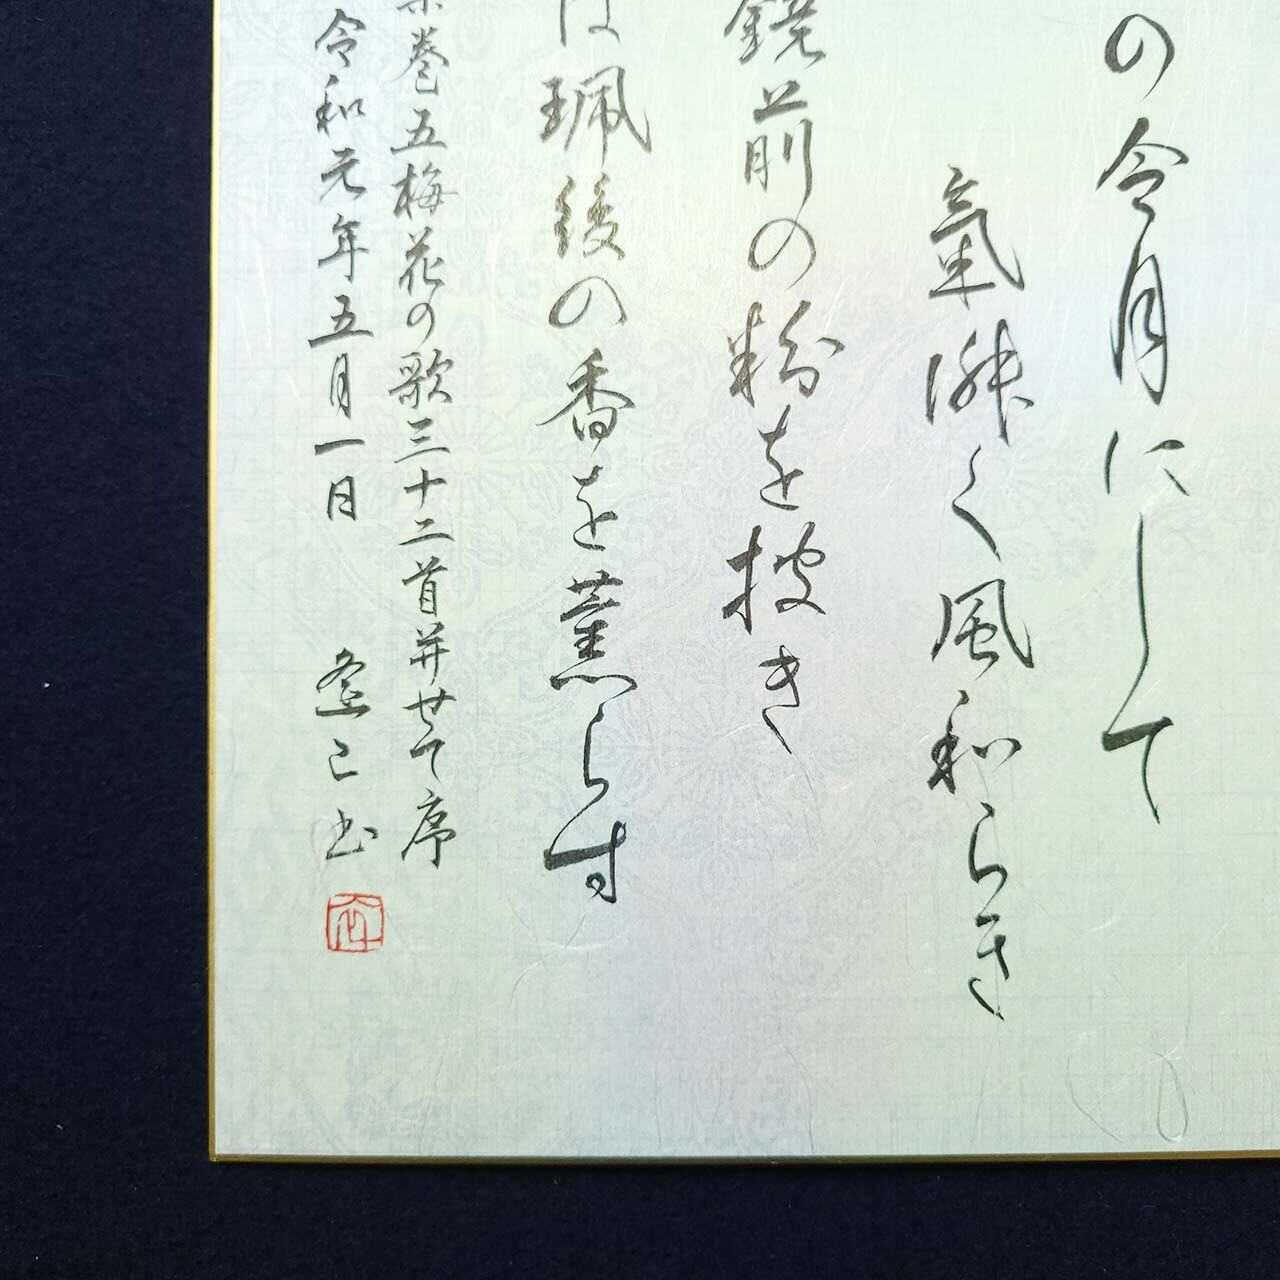 の令月にして
氣淑く風和らき
鏡前の粉を披き
は珮後の香を薫らす
巻五梅花の歌三十二首并せて序
令和元年五月一日
書